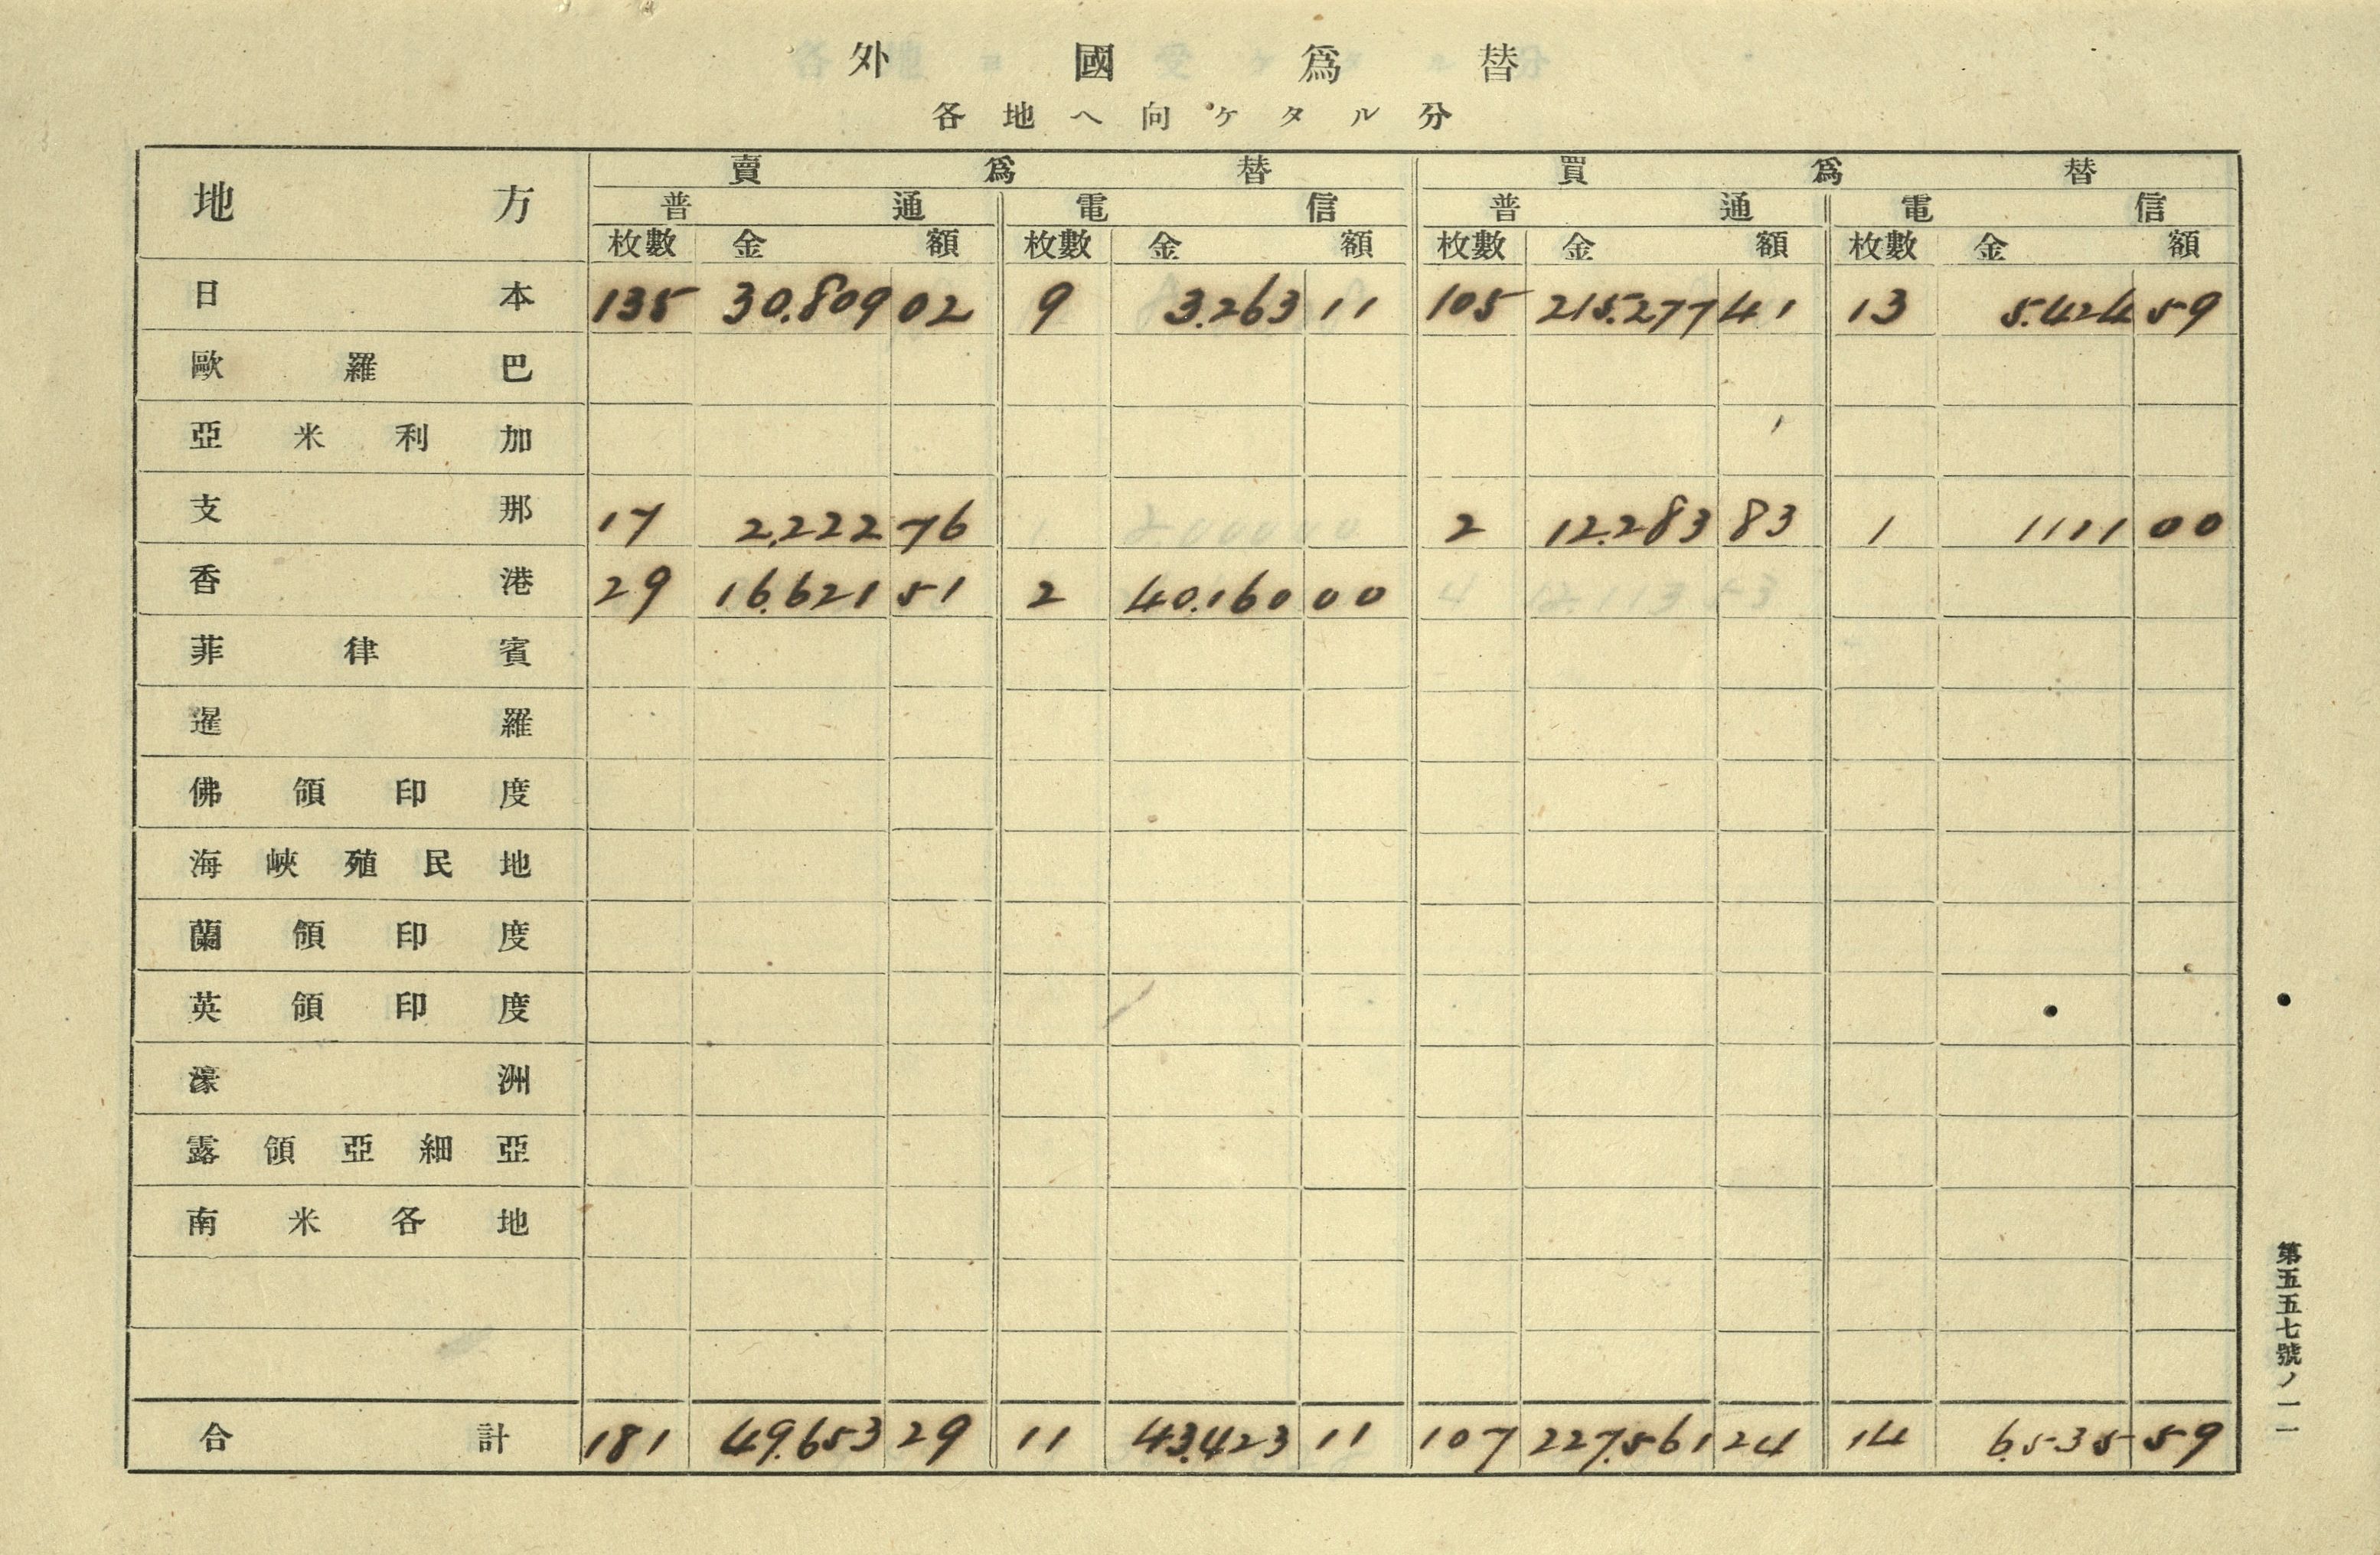 外國爲替
各地ヘ向ケタル分
地方 賣爲替 買爲替
普通 電信 普通 電信
枚數 金額 枚數 金額 枚數 金額 枚數 金額
日本 135 30.809 02 9 3.263 11 105 215.277 41 13 5.424 59
歐羅巴
亞米利加
支那 17 2.222 76 2 12.283 83 1 1111 00
香港 29 16.621 51 2 40.160 00
菲律賓
暹羅
佛領印度
海峽殖民地
蘭領印度
英領印度
濠洲
露領亞細亞
南米各地
合計 181 49.653 29 11 43.423 11 107 227.561 24 14 6.535 59
第五五七號ノ一一